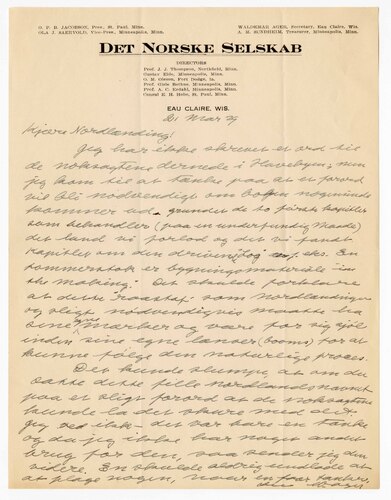 O. P. B. JACOBSON, Pres., St. Paul, Minn.
OLA J. SAERVOLD, Vice-Pres., Minneapolis, Minn.
WALDEMAR AGER, Secretary, Eau Claire, Wis.
A. M. SUNDHEIM, Treasurer, Minneapolis, Minn.
DET NORSKE SELSKAB
DIRECTORS
Prof. J. J. Thompson, Northfield, Minn.
Gustav Eide, Minneapolis, Minn.
Prof. Gisle Bothne, Minneapolis, Minn.
Consul E. H. Hobe, St. Paul, Minn.
EAU CLAIRE, WIS.
21 Mar
Kjære Nordlænding!
Jeg har ikke skrevet et ord til
de nokså dernede i men
jeg kom til at tænke paa at et forord
vil bli nødvendigt om boken nogensinde
kommer ud grundet de to første kapitler
som behandler (paa en underfundig maade)
det land vi forlod og det vi fandt
kapitler om den
er bygningsmateriale "in
the making". Det skulde forklare
at dette "raastof" som nordlændinger
og sligt nødvendigvis maatte ha
sine mærker og være for sig sjøl
inden sine egne lænser (booms) for at
kunne følge den naturlige proces.
Det kunde slumpe at om du
dette lille nordlands
paa et sligt forord at de
kunde la det skure med det.
jeg ved ikke - det var bare en tanke
og da jeg ikke har noget andet
brug for den, saa sender jeg den
videre. En skulde aldrig undlade at
at plage nogen, naar en faar tanker.